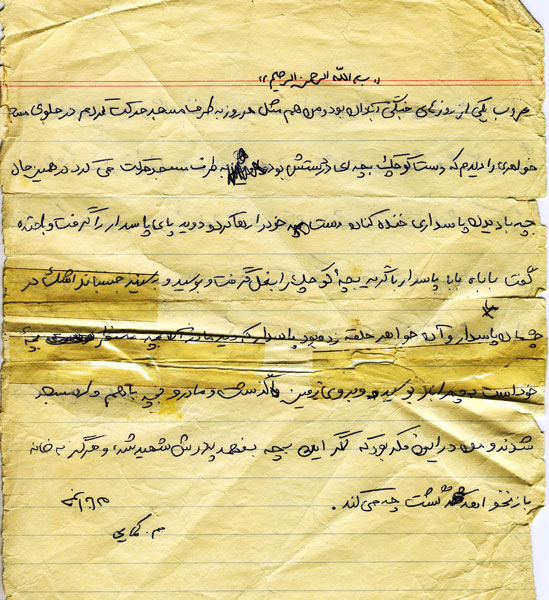 «بسم الله الرحمن الرحیم»
غروب یکی از روزهای جنگی آبادان بود و من هم مثل هر روز به طرف مسجد حرکت کردم در جلوی
خواهری را دیدم که دست کوچک بچه ای در دستش بود به طرف مسجد حرکت می کرد در همین حال
بچه با دیدن پاسداری خنده کنان دست خود را رها کرد و دوید پای پاسدار را گرفت و با خنده
گفت بابا، بابا پاسدار با گریه بچهٔ کوچک را بغل گرفت و بوسید و به سینه چسباند اشک در
چشمان پاسدار و آن خواهر حلقه زده بود پاسدار که دید مادر آن بچه منتظر بچه
خود است بچه را باز بوسید و بر روی زمین گذاشت و مادر و بچه با هم وارد مسجد
شدند و من در این فکر بودم که اگر این بچه بفهمد پدرش شهید شده و هرگز به خانه
باز نخواهد گشت چه می کند.
م. کمایی